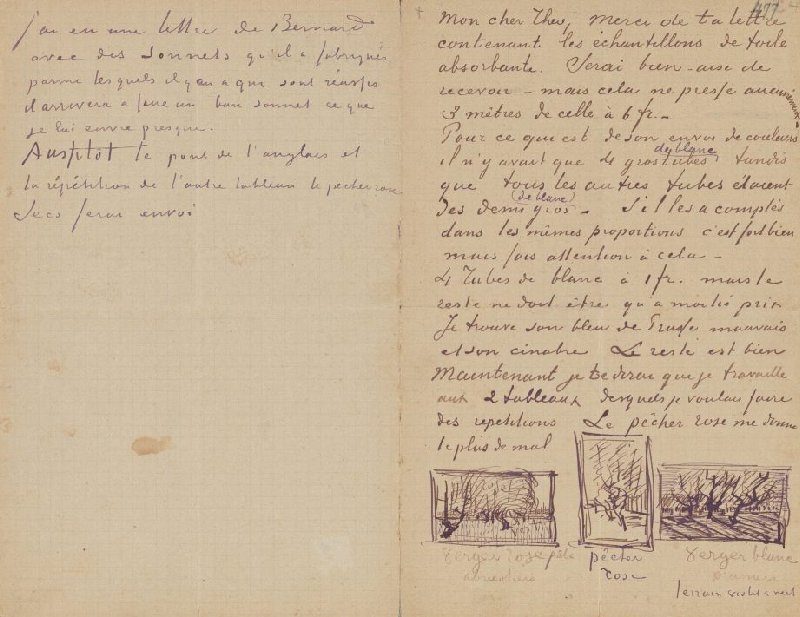 j'ai eu une lettre de Bernard
avec des sonnets qu'il a fabriqués
parmi lesquels il y en a qui sont réussis
il arrivera a faire un bon sonnet ce que
je lui envie presque.
Aussitot le pont de l'anglais et
la répétition de l'autre tableau le pecher rose
secs ferai envoi
477
Mon cher Theo, Merci de ta lettre
contenant les échantillons de toile
absorbante. Serai bien-aise de
recevoir – mais cela ne presse aucunement –
3 mètres de celle à 6 fr. –
Pour ce qui est de son envoi de couleurs
il n'y avait que 4 gros tubes du blanc tandis
que tous les autres tubes étaient
des demi gros (de blanc) – S'il les a comptés
dans les mêmes proportions c'est fort bien
mais fais attention à cela –
4 Tubes de blanc à 1 fr. mais le
reste ne doit être qu'a moitié prix
Je trouve son bleu de Prusse mauvais
et son cinabre Le reste est bien
Maintenant je te dirai que je travaille
aux 2 tableaux desquels je voulais faire
des repetitions Le pêcher rose me donne
le plus de mal
Verger rose pâle
abricotiers
pêcher
rose
Verger blanc
pruniers
terrain violet & vert